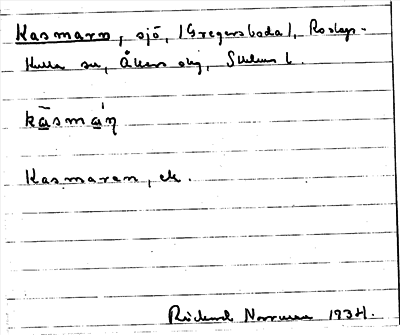 Kasmaren, sjö, (Gregersboda), Roslags-
Kulla sn, Åkers skg, Sthlms l.
kāsmàn
Kasmaren, ek.
Rickard Norrman 1934.